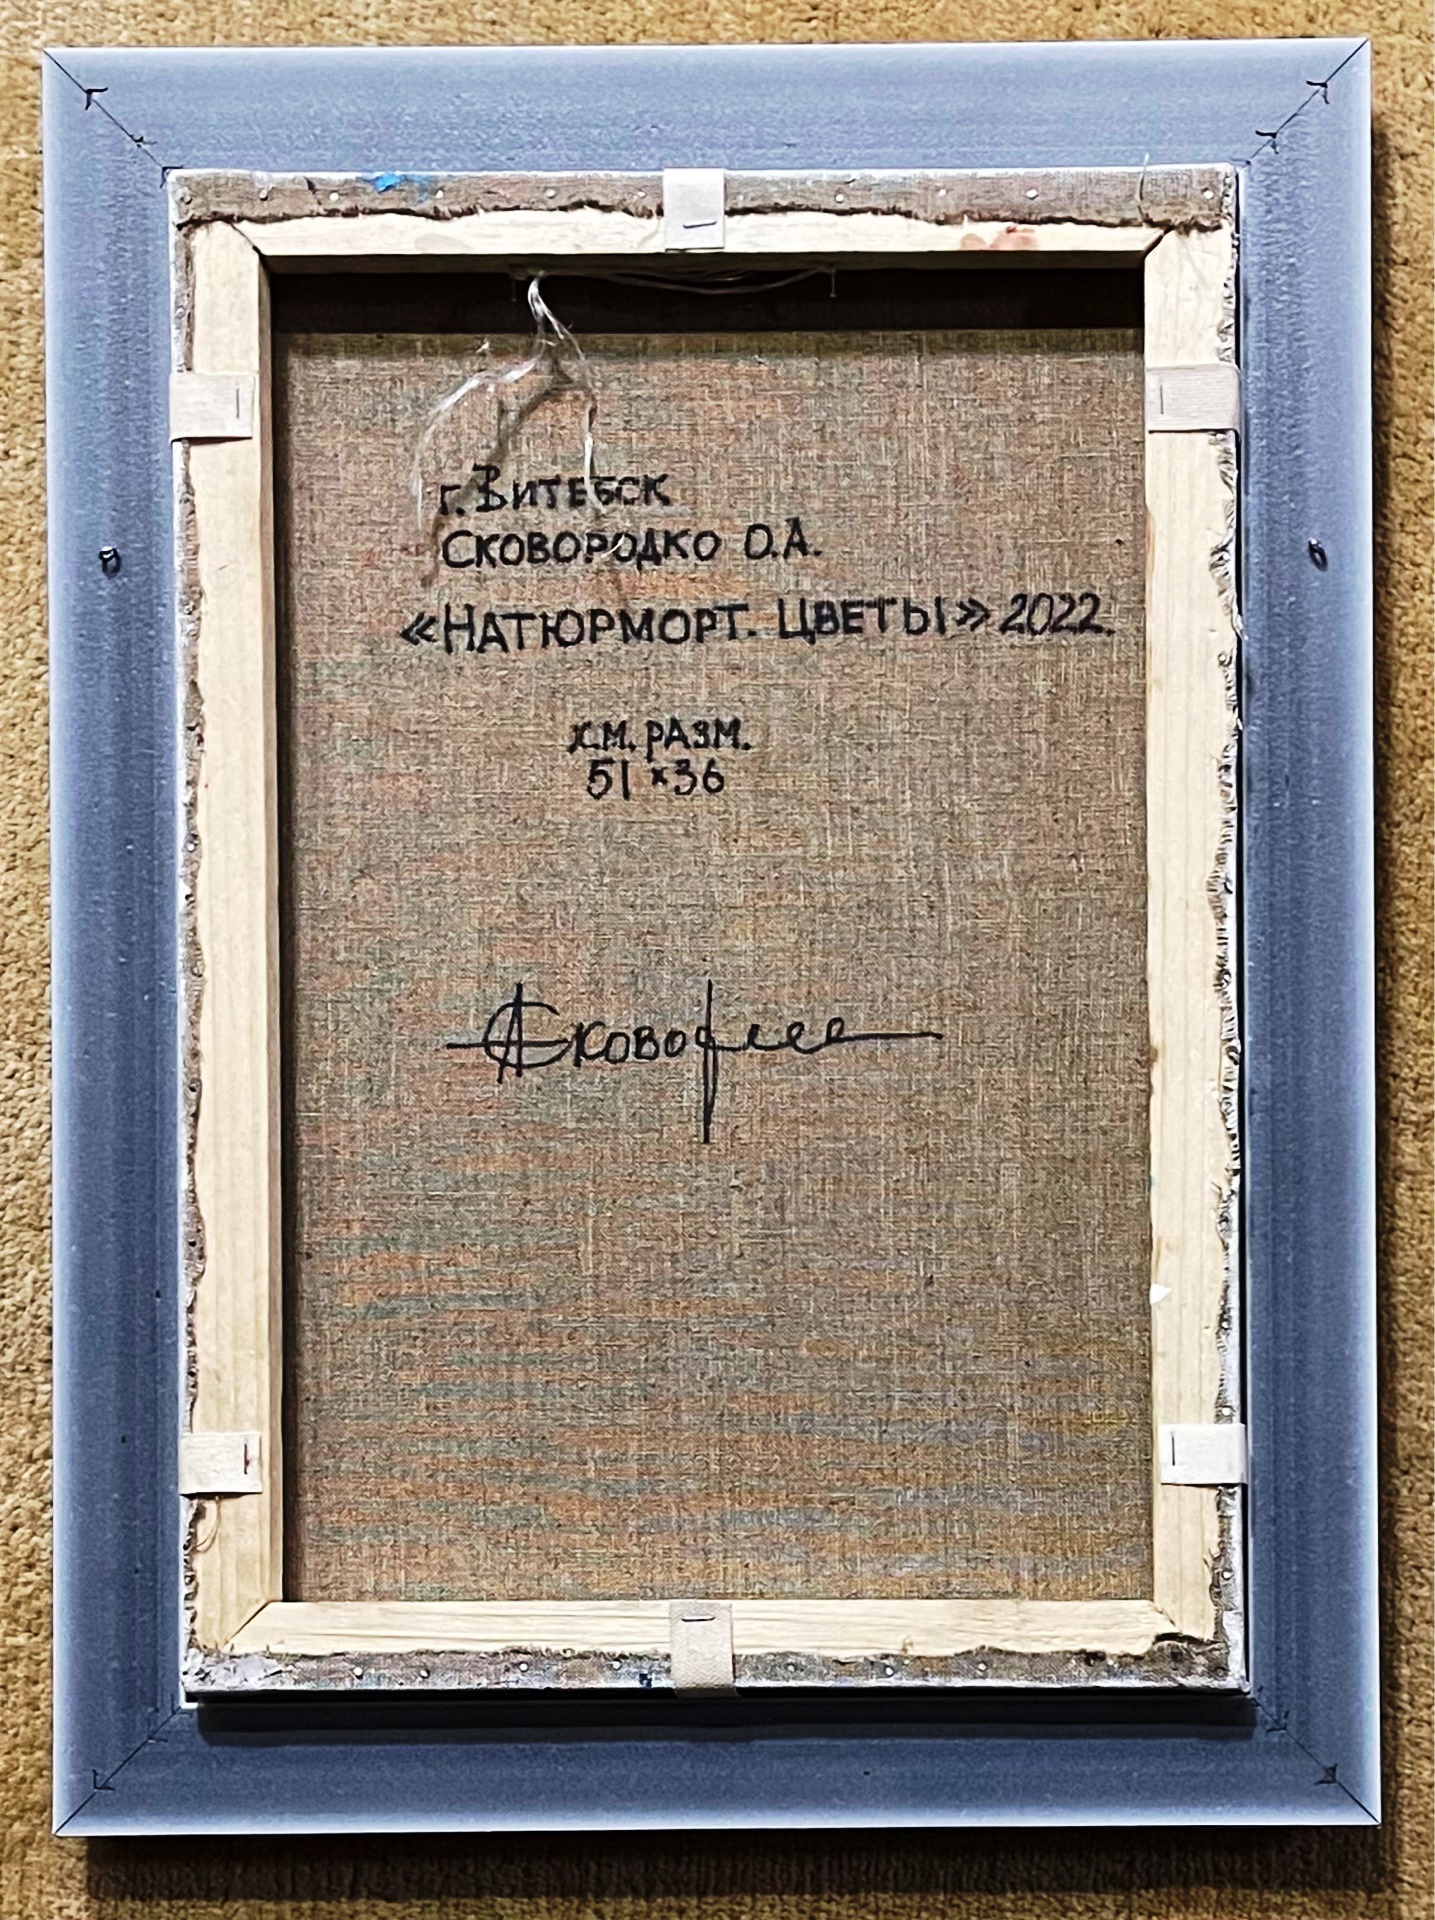 г. Витебск
Сковородко О.А.
«Натюрморт. Цветы» 2022.
х.м. разм.
51 x 36